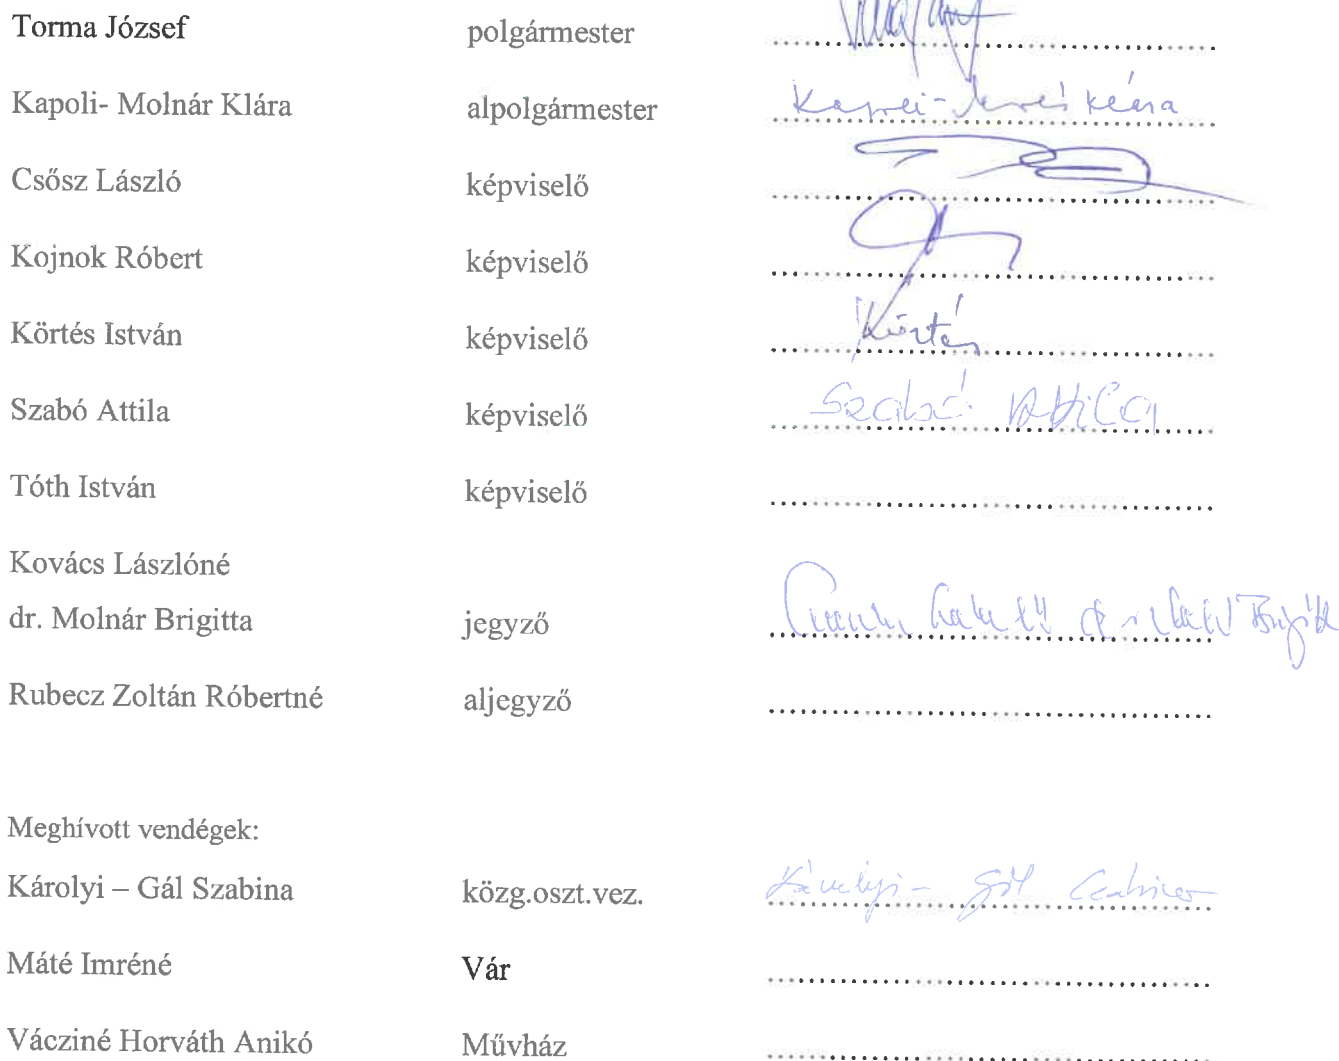 Torma József polgármester ........................................
Kapoli- Molnár Klára alpolgármester ........................................
Csősz László képviselő ........................................
Kojnok Róbert képviselő ........................................
Körtés István képviselő Körtés ........................................
Szabó Attila képviselő Szabó Attila ........................................
Tóth István képviselő ........................................
Kovács Lászlóné
dr. Molnár Brigitta jegyző ........................................
Rubecz Zoltán Róbertné aljegyző ........................................
Meghívott vendégek:
Károlyi – Gál Szabina közg.oszt.vez. Károlyi - Gál Szabina ........................................
Máté Imréné Vár ........................................
Vácziné Horváth Anikó Művház ........................................